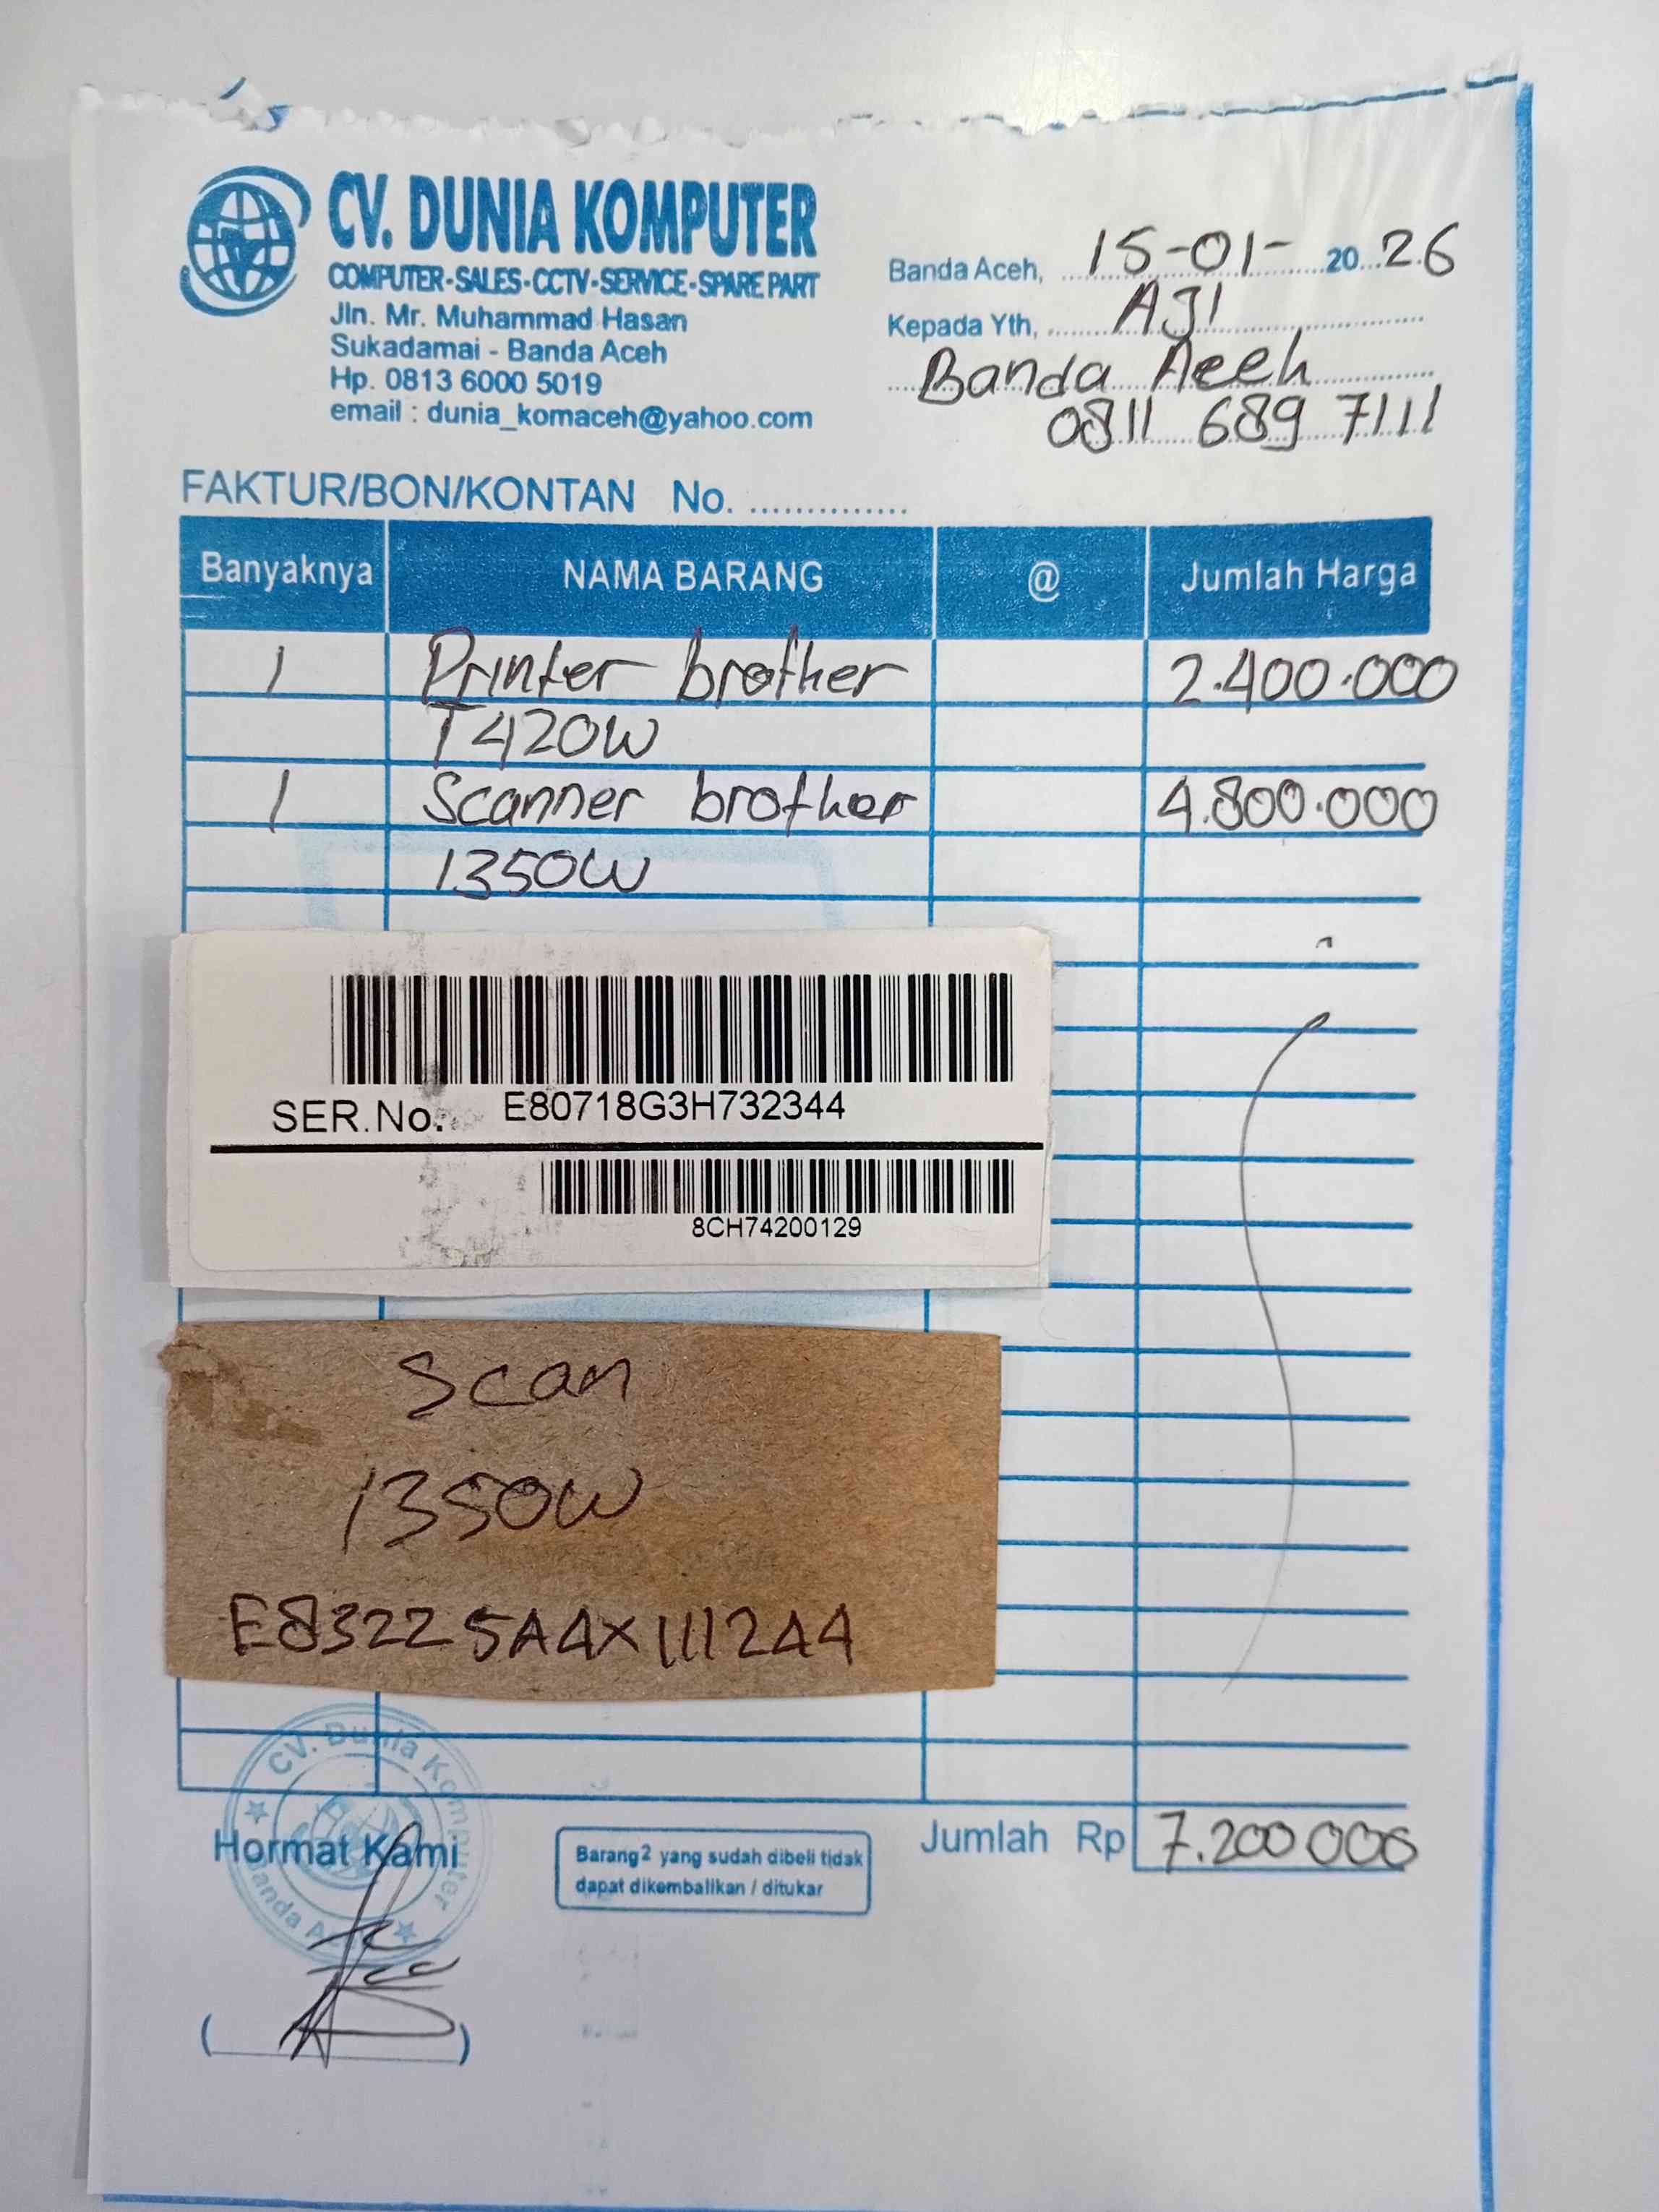 CV. DUNIA KOMPUTER
COMPUTER-SALES-CCTV-SERVICE-SPARE PART
Jln. Mr. Muhammad Hasan
Sukadamai - Banda Aceh
Hp. 0813 6000 5019
email : dunia_komaceh@yahoo.com
Banda Aceh, 15-01- 2026
Kepada Yth, AJI
Banda Aceh
0811 689 7111
FAKTUR/BON/KONTAN No. ...............
Banyaknya NAMA BARANG @ Jumlah Harga
1 Printer brother 2.400.000
T420W
1 Scanner brother 4.800.000
1350W
SER.No. E80718G3H732344
8CH74200129
Scan
1350W
E83225A4X111244
CV. Dunia Komputer
Banda Aceh
Hormat Kami
Barang2 yang sudah dibeli tidak
dapat dikembalikan / ditukar
Jumlah Rp 7.200 000